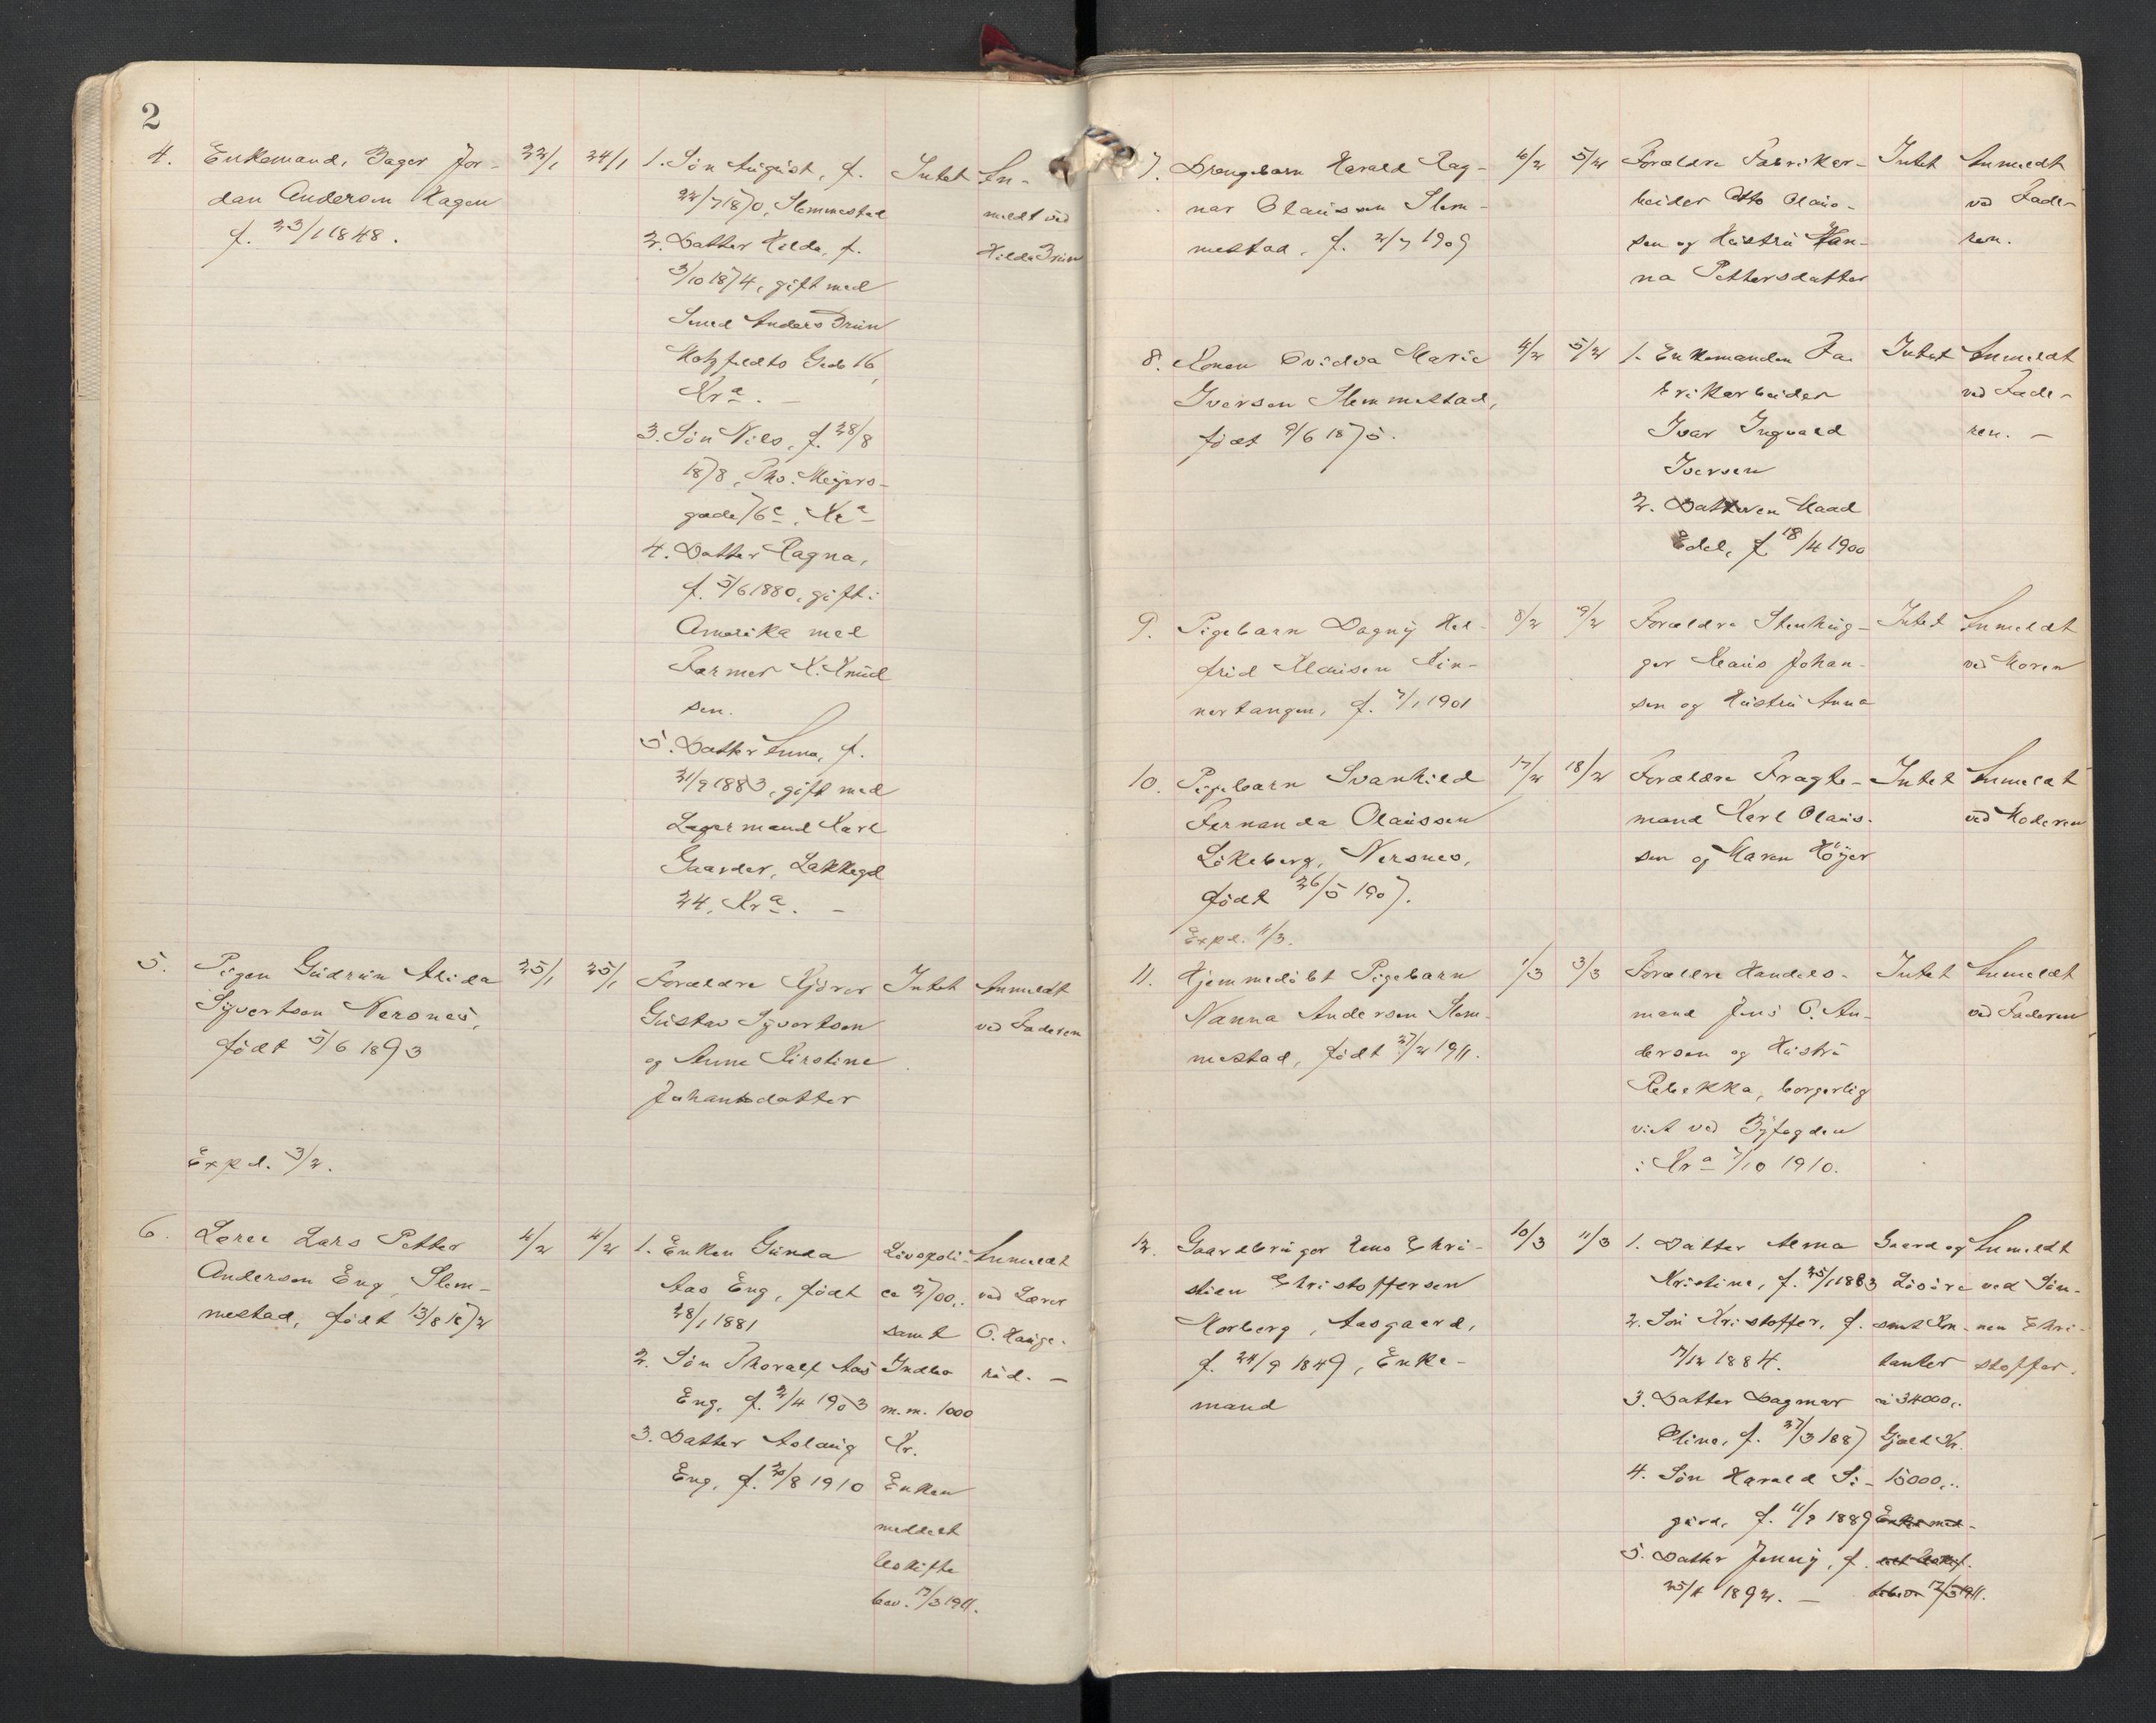 2
4. Enkemand, Bager Jor-
dan Andersen Hagen
f. 23/1 1848.
22/1
24/1
1. Søn August, f.
22/7 1870, Slemmestad
2. Datter Hilda, f.
3/10 1874, gift med
Smed Anders Bruun
Hotzfeldts Gade 16,
Kra. —
3. Søn Nils, f. 28/8
1878, Tho. Meyers-
gade 76c, Kra
4. Datter Ragna,
f. 5/6 1880, gift i
Amerika med
Farmer K. Knud
sen.
5. Datter Anna, f.
21/9 1883, gift med
Lagermand Karl
Gaarder, Lakkegd
24, Kra. —
Intet
An-
meldt ved
Hilda Bruun
5. Pigen Gudrun Alida
Syvertsen Nersnes,
født 5/6 1893
Expd. 3/2.
25/1
25/1
Forældre Kjører
Gustav Syvertsen
og Anne Kirstine
Johansdatter
Intet
Anmeldt
ved Faderen
6. Lærer Lars Petter
Andersen Eng, Slem-
mestad, født 13/8 1872
4/2
4/2
1. Enken Gunda
Aas Eng, født
28/1 1881
2. Søn Thoralf Aas
Eng, f. 2/4 1903
3. Datter Aslaug
Eng, f. 20/8 1910
Livspoli-
ce 2700,:
samt
Indbo
m.m. 1000
Kr.
Enken
meddelt
Uskifte
bev. 17/3 1911.
Anmeldt
ved Lærer
O. Hauge-
rud. —
7. Drengebarn Harald Rag-
nar Olaussen Slem-
mestad, f. 2/7 1909
4/2
5/2
Forældre Fabrikar-
beider Otto Olaus-
sen og Hustru Han-
na Pettersdatter
Intet
Anmeldt
ved Fade-
ren.
8. Konen Ovidva Marie
Iversen Slemmestad,
født 9/6 1875.
4/2
5/2
1. Enkemanden Fa-
brikarbeider
Ivar Ingvald
Iversen
2. Datteren Maad
Edel, f. 18/4 1900
Intet
Anmeldt
ved Fade-
ren. —
9. Pigebarn Dagny Hel-
frid Klausen Kin-
nertangen, f. 7/1 1901
8/2
9/2
Forældre Stenhug-
ger Klaus Johan-
sen og Hustru Anna
Intet
Anmeldt
ved Moren
10. Pigebarn Svanhild
Fernanda Olaussen
Løkeberg, Nersnes,
født 26/5 1907.
Expd. 11/3.
17/2
18/2
Forældre Fragte-
mand Karl Olaus-
sen og Maren Höyer
Intet
Anmeldt
ved Moderen
11. Hjemmedøbt Pigebarn
Nanna Andersen Slem-
mestad, født 27/2 1911.
1/3
3/3
Forældre Handels-
mand Jens O. An-
dersen og Hustru
Rebekka, borgerlig
viet ved Byfogden
i Kra 7/10 1910.
Intet
Anmeldt
ved Faderen
12. Gaardbruger Hans Chri-
stian Christoffersen
Morberg, Aasgaard,
f. 24/9 1849, Enke-
mand
10/3
11/3
1. Datter Alma
Kristine, f. 25/1 1883
2. Søn Kristoffer, f.
7/12 1884.
3. Datter Dagmar
Oline, f. 27/3 1887
4. Søn Harald Si-
gurd, f. 11/9 1889
5. Datter Jenny, f.
25/4 1892. —
Gaard og
Løsøre
samt Kon-
tanter
a 34000,:
Gjæld Kr.
15000,:
Enken med-
delt Uskif-
tebev. 17/3 1911.
Anmeldt
ved Søn-
nen Chri-
stoffer.